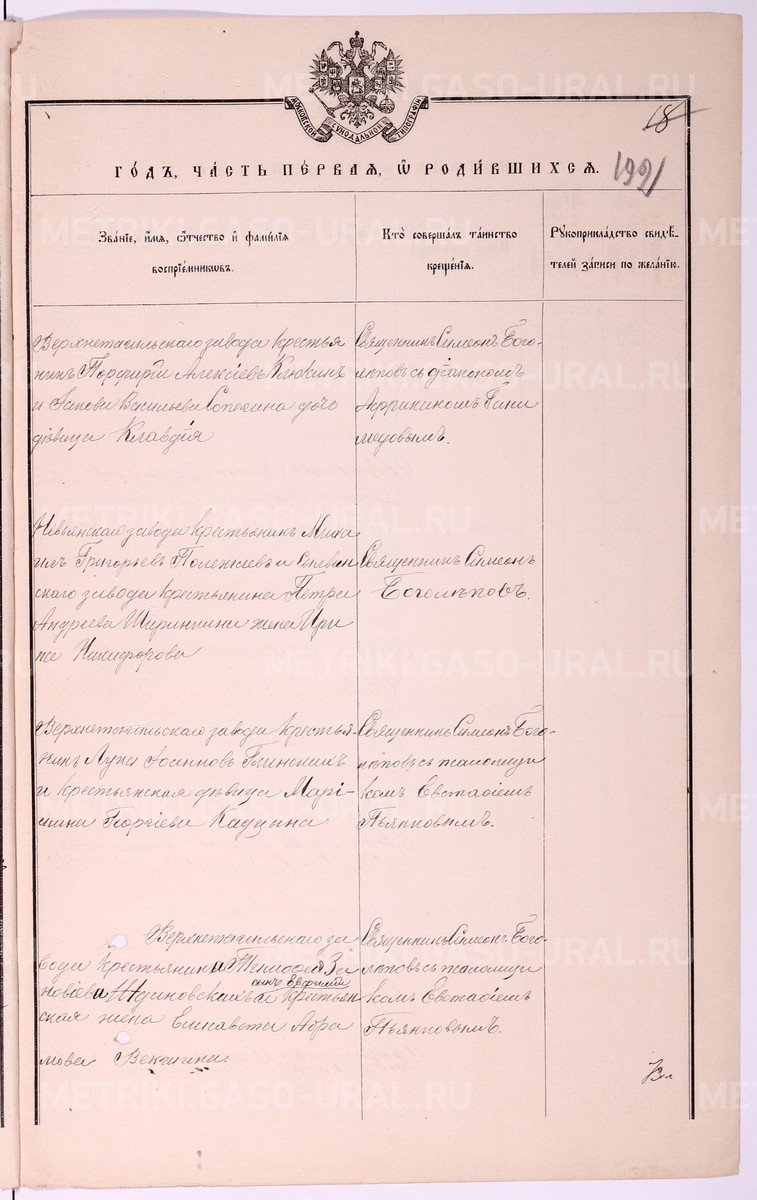 МОСКОВСКОЙ СѴНОДАЛЬНОЙ ТИПОГРАФІИ
18
ГО́ДЪ, ЧА́СТЬ ПЕ́РВАЯ, Ѡ҆ РОДИ́ВШИХСЯ.
Зва́нїе, и҆́мя, ѻ҆́тчество и҆ фами́лїя
воспрїе́мникѡвъ.
Кто̀ соверша́лъ та́инство
креще́нїя.
Рꙋкоприкла́дство свидѣ́-
телей за́писи по жела́нїю.
Верхнетагильскаго завода крестья
нинъ Порфирій Алексіевъ Клювинъ
и Іакова Васильева Сопегина дочь
дѣвица Клавдія
Священникъ Симеонъ Бого-
лѣповъ съ діакономъ
Африканомъ Гани
медовымъ.
Невьянскаго завода крестьянинъ Миха
илъ Григорьевъ Полежаевъ и
скаго завода крестьянина Петра
Андреева Ширинкина жена Ири
на Никифорова
Священникъ Симеонъ
Боголѣповъ.
Верхнетагильскаго завода крестья-
нинъ Лука Іоанновъ Глинскихъ
и крестьянская дѣвица Марі-
амна Георгіева Кадцина
Священникъ Симеонъ Бого-
лѣповъ съ псаломщи
комъ Евстаѳіемъ
Пьянковымъ.
Верхнетагильскаго за
вода крестьянина Тимофея За
сынъ Евфимій
новіева Ждановскихъ и крестьян
ская жена Елисавета Абра
мова Векшина.
Священникъ Симеонъ Бого-
лѣповъ съ псаломщи
комъ Евстаѳіемъ
Пьянковымъ.
METRIKI.GASO-URAL.RU